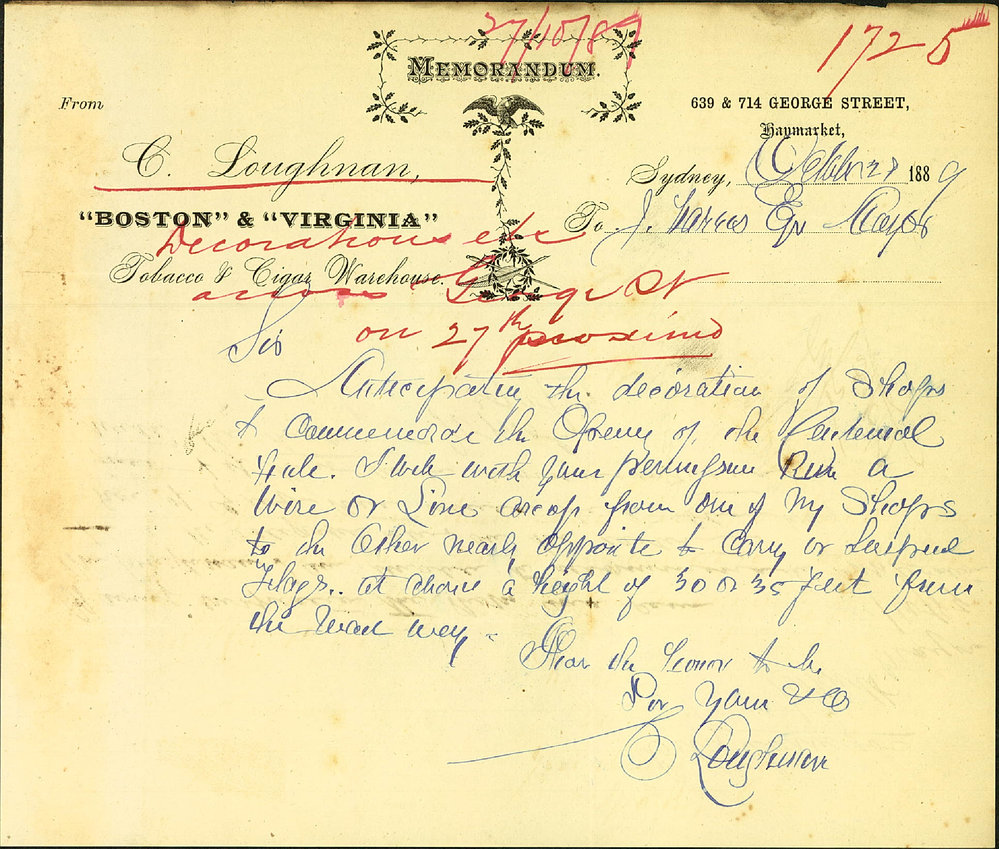 27/10/89
1725
MEMORANDUM.
From
639 & 714 GEORGE STREET,
Haymarket,
C. Loughnan,
Sydney, October 28 1889
"BOSTON" & "VIRGINIA"
To J. Esqr Mayor
Decorations etc
Tobacco & Cigar Warehouse.
across George St
on 27th proximo
Sir
Anticipating the decoration of Shops
to Commemorate the Opening of the
I wish with your permission Run a
Wire or Line across from one of my Shops
to the Other nearly opposite to Carry or Suspend
Flags.. at about a height of 30 or 35 feet from
the Wood way.
I have the honor to be
Sir Yours
C Loughnan